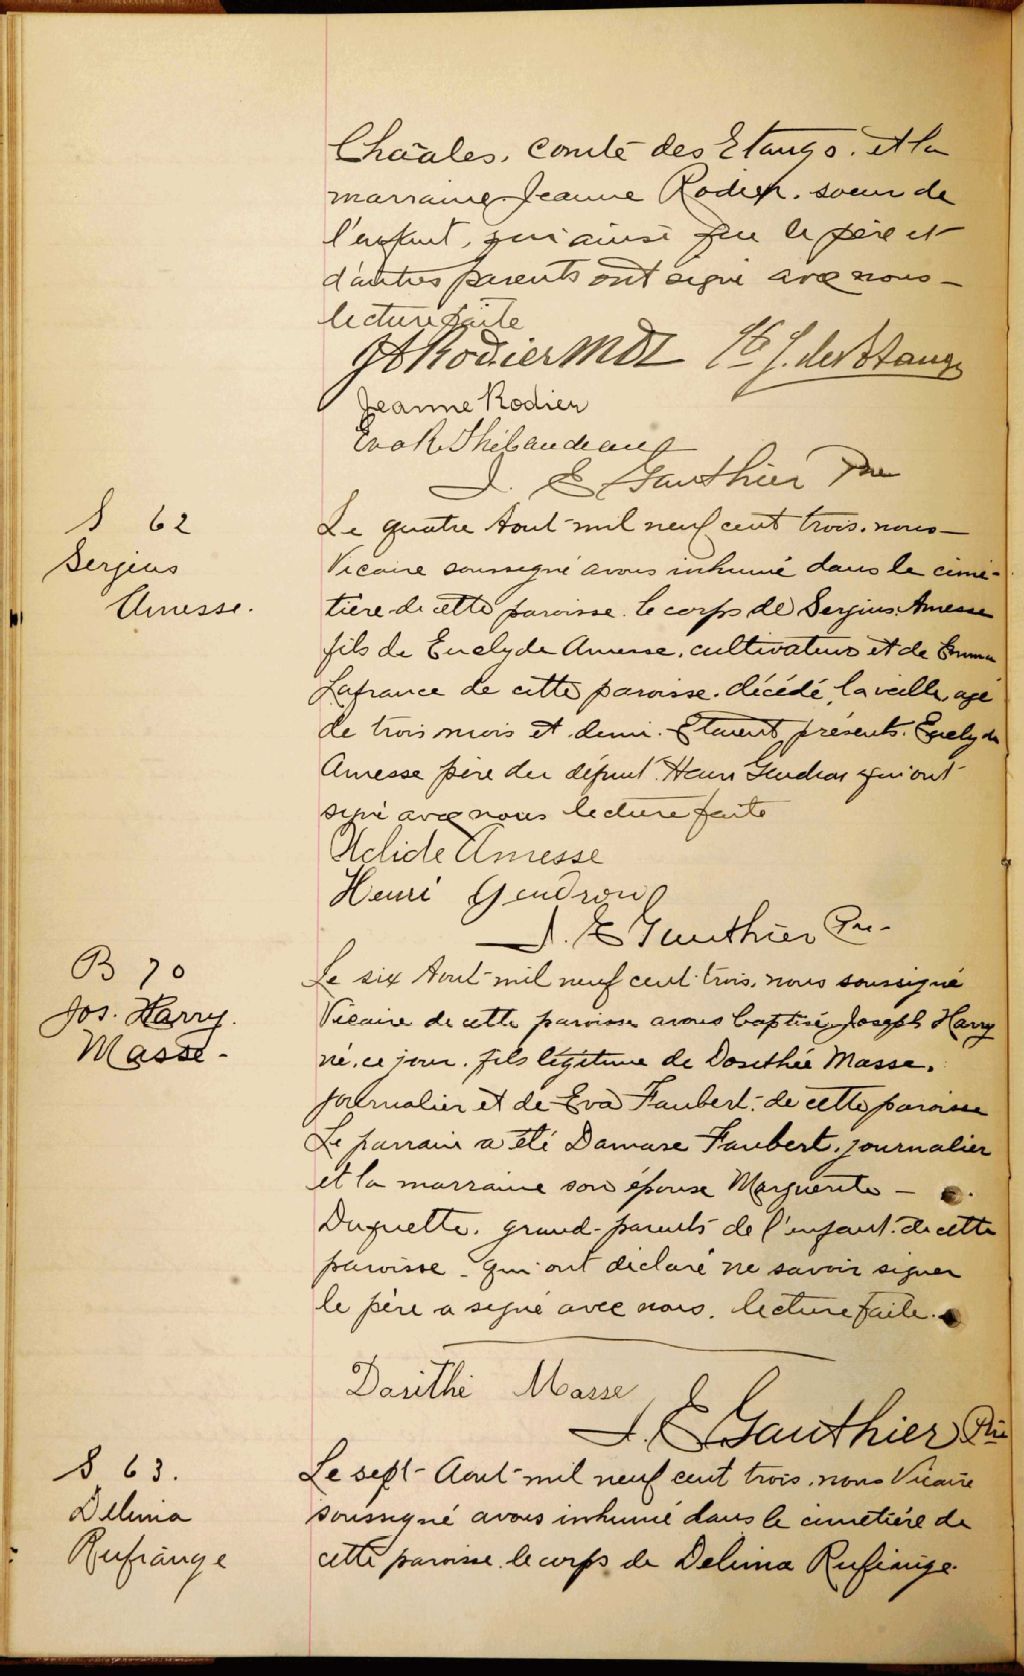 Chàales, comté des Etangs. et la
marraine Jeanne Rodier, soeur de
l'enfant, qui ainsi que le père et
d'autres parents ont signé avec nous -
lecture faite
Rodier MDL
Jeanne Rodier
Eva R Thibaudeau
J. E Gauthier Ptre
S 62
Sergius
Amesse.
Le quatre Aout mil neuf cent trois, nous -
Vicaire soussigné avons inhumé dans le cime-
tière de cette paroisse le corps de Sergius Amesse
fils de Euclyde Amesse, cultivateur et de Emma
Lafrance de cette paroisse. décédé la veille, agé
de trois mois et demi. Etaient présents. Euclyde
Amesse père du défunt Henri Gendron qui ont
signé avec nous lecture faite
Uclide Amesse
Henri Gendron
J. E Gauthier Ptre -
B 70
Jos. Harry.
Masse -
Le six Aout mil neuf cent trois, nous soussigné
Vicaire de cette paroisse avons baptisé Joseph Harry
né, ce jour, fils légitime de Dosithée Masse,
journalier et de Eva Faubert, de cette paroisse
Le parrain a été Damase Faubert, journalier
et la marraine son épouse Marguerite -
Duquette, grand-parents de l'enfant de cette
paroisse - qui ont déclaré ne savoir signer
le père a signé avec nous, lecture faite.
Dosithé Masse
J. E Gauthier Ptre
S 63.
Delima
Rufiange
Le sept Aout mil neuf cent trois, nous Vicaire
soussigné avons inhumé dans le cimetière de
cette paroisse le corps de Delima Rufiange.